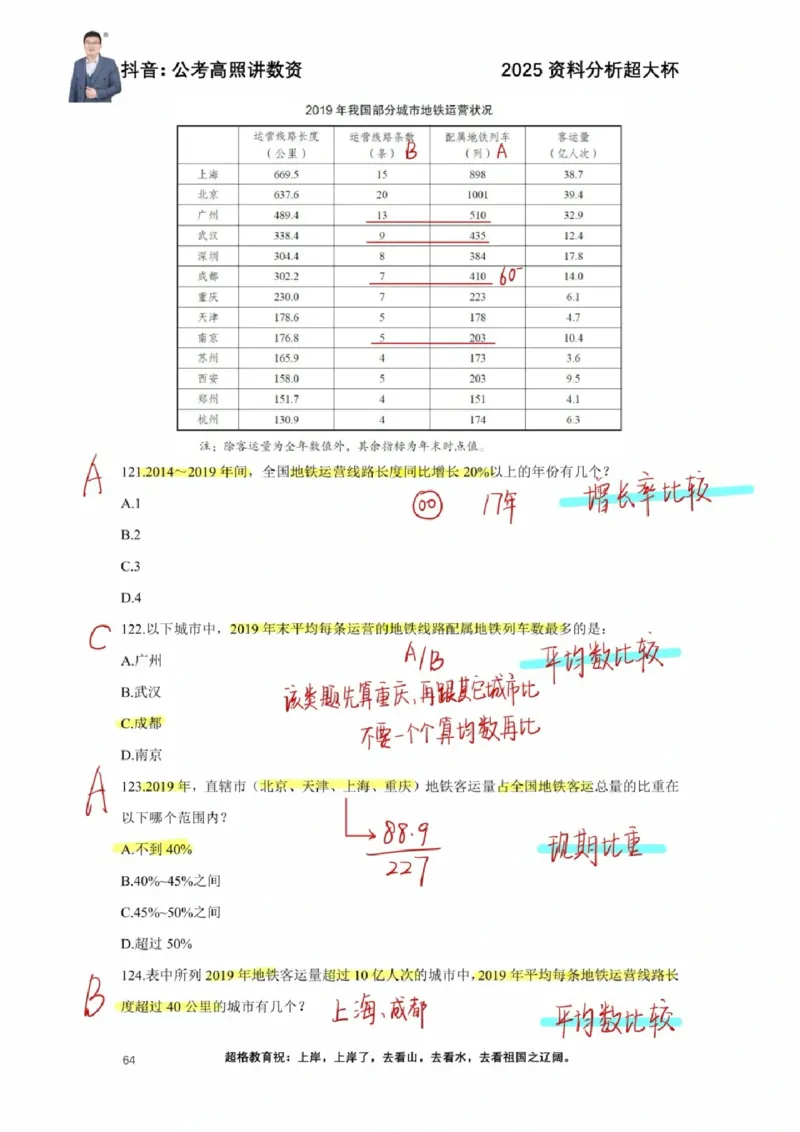 抖音：公考高照讲数资
2025 资料分析超大杯
2019 年我国部分城市地铁运营状况
运营线路长度（公里） 运营线路条数（条） B 配属地铁列车（列） A 客运量（亿人次）
上海 669.5 15 898 38.7
北京 637.6 20 1001 39.4
广州 489.4 13 510 32.9
武汉 338.4 9 435 12.4
深圳 304.4 8 384 17.8
成都 302.2 7 410 14.0 60⁻
重庆 230.0 7 223 6.1
天津 178.6 5 178 4.7
南京 176.8 5 203 10.4
苏州 165.9 4 173 3.6
西安 158.0 5 203 9.5
郑州 151.7 4 151 4.1
杭州 130.9 4 174 6.3
注：除客运量为全年数值外，其余指标为年末时点值。
A 121.2014～2019 年间，全国地铁运营线路长度同比增长 20%以上的年份有几个？
A.1
00 17年 增长率比较
B.2
C.3
D.4
C 122.以下城市中，2019 年末平均每条运营的地铁线路配属地铁列车数最多的是：
A.广州
A/B 平均数比较
B.武汉
该类题先算重庆，再跟其它城市比
C.成都
不要一个个算均数再比
D.南京
A 123.2019 年，直辖市（北京、天津、上海、重庆）地铁客运量占全国地铁客运总量的比重在
以下哪个范围内？
88.9
A.不到 40%
227
现期比重
B.40%~45%之间
C.45%~50%之间
D.超过 50%
B 124.表中所列 2019 年地铁客运量超过 10 亿人次的城市中，2019 年平均每条地铁运营线路长
度超过 40 公里的城市有几个？ 上海、成都
平均数比较
64
超格教育祝：上岸，上岸了，去看山，去看水，去看祖国之辽阔。